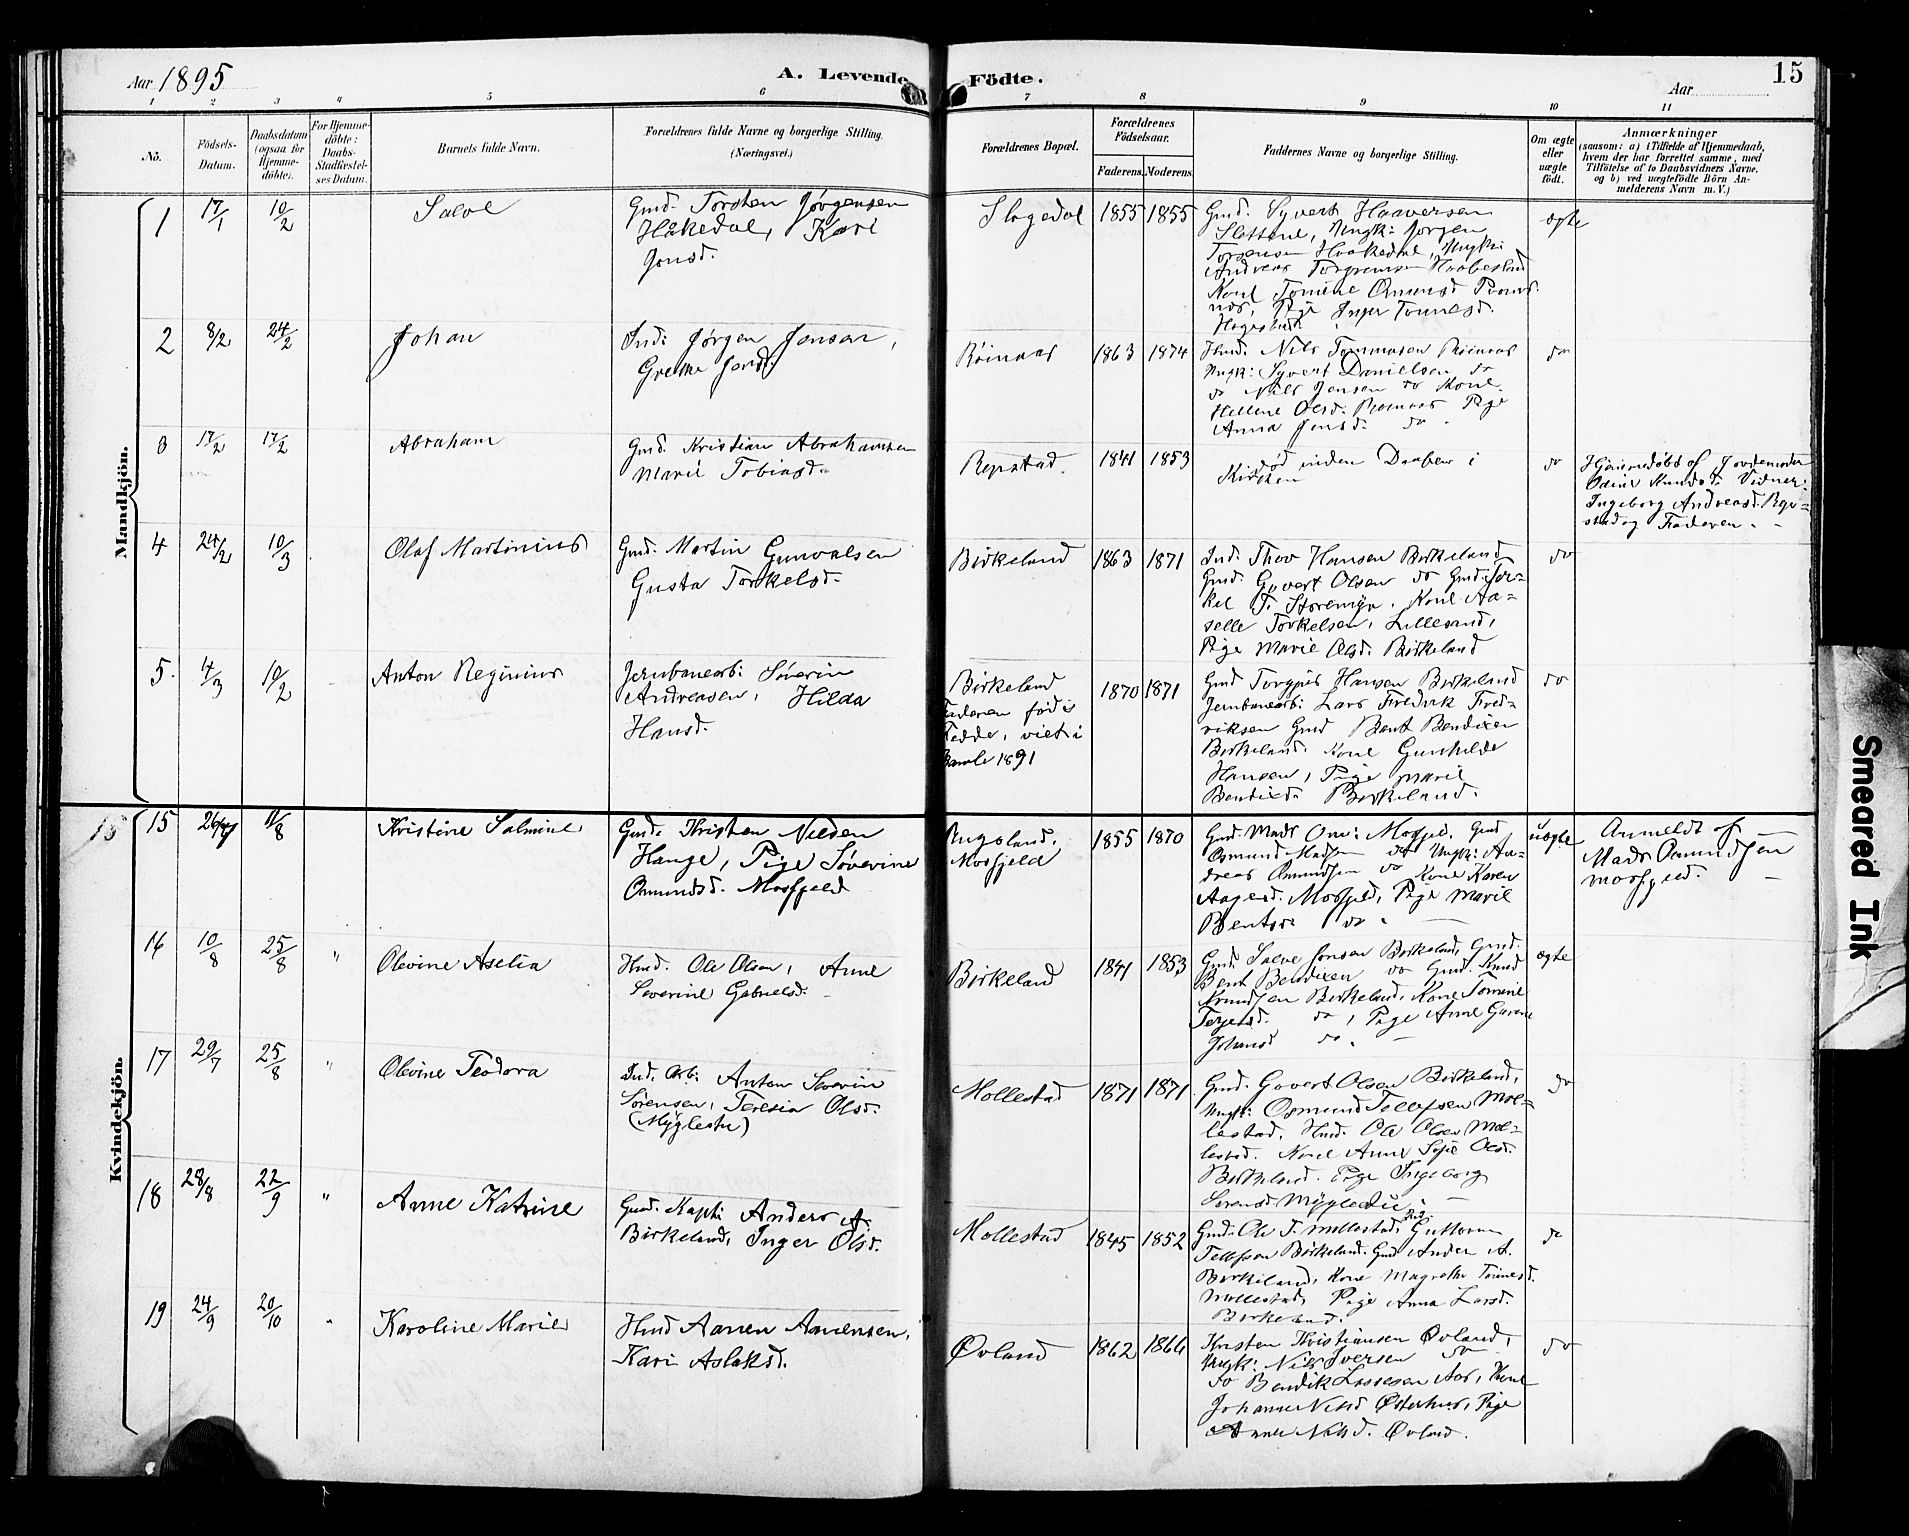 Aar 1895
A. Levende Födte.
Aar
15
1 2 3 4 5 6 7 8 9 10 11
No.
Födsels-
Datum.
Daabsdatum
(ogsaa for
Hjemme-
döbte).
For Hjemme-
döbte:
Daabs-
Stadfæstel-
ses Datum.
Barnets fulde Navn.
Forældrenes fulde Navne og borgerlige Stilling.
(Næringsvei.)
Forældrenes Bopæl.
Forældrenes
Födselsaar.
Faderens. Moderens.
Faddernes Navne og borgerlige Stilling.
Om ægte
eller
uægte
födt.
Anmærkninger
(saasom: a) i Tilfælde af Hjemmedaab,
hvem der har forrettet samme, med
Tilföielse af to Daabsvidners Navne,
og b) ved uægtefödte Börn An-
melderens Navn m. V.)
Mandkjön.
1 17/1 10/2 Salve
Gmd. Torsten Jørgensen
Håkedal, Kari
Jonsd.
Slogedal 1855 1855
Gmd. Syvert Haaversen
Slettene, Ungk: Jørgen
Torsensen Haakedal, Ungk:
Andreas Torgrimsen Haabesland
Kone Tomine Osmunsd
Pige Inger Tonnesd.
ægte
2 8/2 24/2 Johan
Ind: Jørgen Jensen,
Grethe Jensd.
Röinaas 1863 1874
Hmd. Nils Tommasen Röinaas
Ungk: Syvert Danielsen do
do Nils Jensen do Kone
Hellene Olsd. Röinaas Pige
Anna Jensd. do.
do
3 17/2 17/2 Abraham
Gmd. Kristian Abrahamsen
Marie Tobiasd.
Repstad. 1841 1853
Död inden Daaben i
Kirken
do
Hjemmedøbt af Jordemoder
Odine Knudsd. Vidner:
Ingeborg Andreasd. Rep-
stad og Faderen.
4 24/2 10/3 Olaf Martinius
Gmd. Martin Gunvalsen
Gusta Torkelsd.
Birkeland 1863 1871
Ind. Thov Hansen Birkeland
Gmd. Govert Olsen do Gmd. Tor-
kel T. Storemyr. Kone Aa-
selle Torkelsen, Lillesand,
Pige Marie Olsd. Birkeland
do
5. 4/3 10/2 Anton Reginius
Jernbanearb: Søverin
Andreasen, Hilda
Hansd.
Birkeland
Faderen född i
Fedde, viet i
Bamle 1891
1870 1871
Gmd Torgjus Hansen Birkeland
Jernbanearb: Lars Fredrik Fred-
riksen Gmd Bent Bendixen
Birkeland. Kone Gunhilde
Hansen, Pige Marie
Bentsd. Birkeland.
do
Kvindekjön.
15 15 26/7 11/8 Kristine Salmine
Gmd. Kristen Nilsen
Hauge, Pige Søverine
Osmundsd. Mosfjeld
Rugsland,
Mosfjeld
1855 1870
Gmd. Mads Osm: Mosfjel. Gmd
Osmund Madsen do Ungk: An-
dreas Osmundsen do Kone Karen
Aagesd. Mosfjeld, Pige Marie
Bentsd. do.
uægte
Anmeldt af
Mads Osmundsen
Mosfjeld.
16 10/8 25/8 " Olevine Aselia
Hmd. Ole Olsen, Anne
Severine Gabrielsd.
Birkeland 1841 1853
Gmd. Salve Jonsen Birkeland, Gmd.
Bent Bendixen do Gmd. Knud
Knudsen Birkeland, Kone Tomine
Terjesd. do, Pige Anne Gurine
Johansd do.
ægte
17 29/7 25/8 " Olevine Teodora
Ind. Arb: Anton Severin
Sørensen, Teresia Olsd.
(Myglestu)
Mollestad 1871 1871
Gmd. Govert Olsen Birkeland,
Ungk: Osmund Tellefsen Mol-
lestad, Hmd. Ole Olsen Mol-
lestad. Kone Anne Sofie Olsd.
Birkeland. Pige Ingeborg
Sørensd Myglestu.
do
18 28/8 22/9 " Anne Katrine
Gmd. Kapt: Anders A.
Birkeland, Inger Olsd.
Mollestad 1845 1852
Gmd. Ole T. Mollestad, Guttorm
Tellefsen Birkeland. Gmd Anders A.
Birkeland, Kone Magrethe Tomesd.
Mollestad, Pige Anna Larsd.
Birkeland.
do
19 24/9 20/10 " Karoline Marie
Hmd Aanen Aanensen,
Kari Aslaksd.
Øvland 1862 1864
Kristen Kristiansen Øvland,
Ungk: Nils Iversen do
do Bendik Lassesen Aas, Kone
Johanne Nilsd Østerhus, Pige
Anne Nilsd. Øvland.
do
Smeared Ink